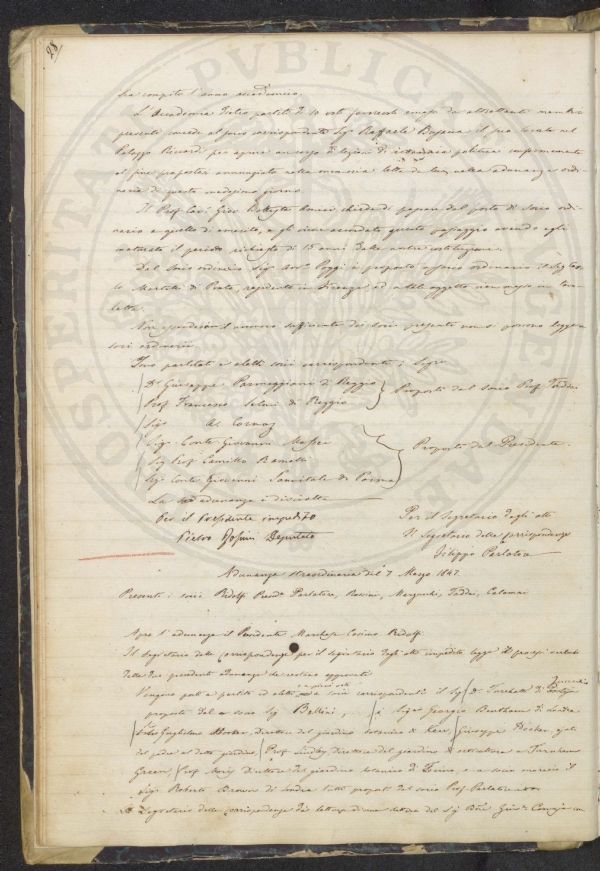 28
sia compito l'anno accademico.
L'Accademia dietro partito di 10 voti favorevoli emessi da altrettanti membri
presenti concede al socio corrispondente Sigr. Raffaele Busacca il suo locale nel
Palazzo Riccardi per aprire un corso di lezioni di economia politica
al fine propostosi annunziato nella memoria letta da lui nella adunanza ordi-
naria di questo medesimo giorno.
Il Prof. Cav. Gio. Battista Amici chiedendo passare dal posto di socio ordi-
nario a quello di emerito, gli viene accordato questo passaggio avendo egli
maturato il periodo richiesto di 15 anni dalle nostre costituzioni.
Dal Socio ordinario Sigr. Avv. Poggi è proposto a socio ordinario il Sigr.
Martelli di Prato, residente in Firenze ed a tale oggetto
letta.
Non essendovi il numero sufficiente dei soci presenti non si possono leggere
soci ordinarii.
Sono partitati e eletti socii corrispondenti i Sigri.
Dr. Giuseppe Parmeggiani di Reggio
Prof. Francesco Selmi di Reggio } Proposti dal socio Prof. Taddei
Sigr. Al. Cornaz
Sigr. Conte Giovanni Massei
Sig. Prof. Cammillo } Proposti dal Presidente.
Sigr. Conte Giovanni Sanvitale di Parma
La adunanza è disciolta
Per il Presidente impedito
Pietro Deputato
Per il Segretario degli atti
Il Segretario delle Corrispondenze
Filippo Parlatore
Adunanza straordinaria del 7 Marzo 1847
Presenti i socii Ridolfi Presid. Parlatore, Taddei, Calamai
Apre l'adunanza il Presidente Marchese Cosimo Ridolfi.
Il Segretario delle corrispondenze per il segretario degli atti impedito legge il processo verbale
delle due precedenti adunanze che restano approvati
Vengono poi a partito ed eletti a pieni voti a socii corrispondenti il Sigr. Dr. Turchetti di
proposto dal socio Sig. Bellini, i Sigri. Giorgio Bentham di Londra
Guglielmo Hooker, Direttore del giardino botanico di Kew, Giuseppe Hooker
del padre al detto giardino, Prof. Lindley Direttore del giardino di orticultura a Turnham
Green, Prof. Moris Direttore del giardino botanico di Torino, e a socio onorario il
Sigr. Roberto Brown di Londra tutti proposti dal socio Prof. Parlatore
Il Segretario delle corrispondenze dà lettura di una lettera del Sig.